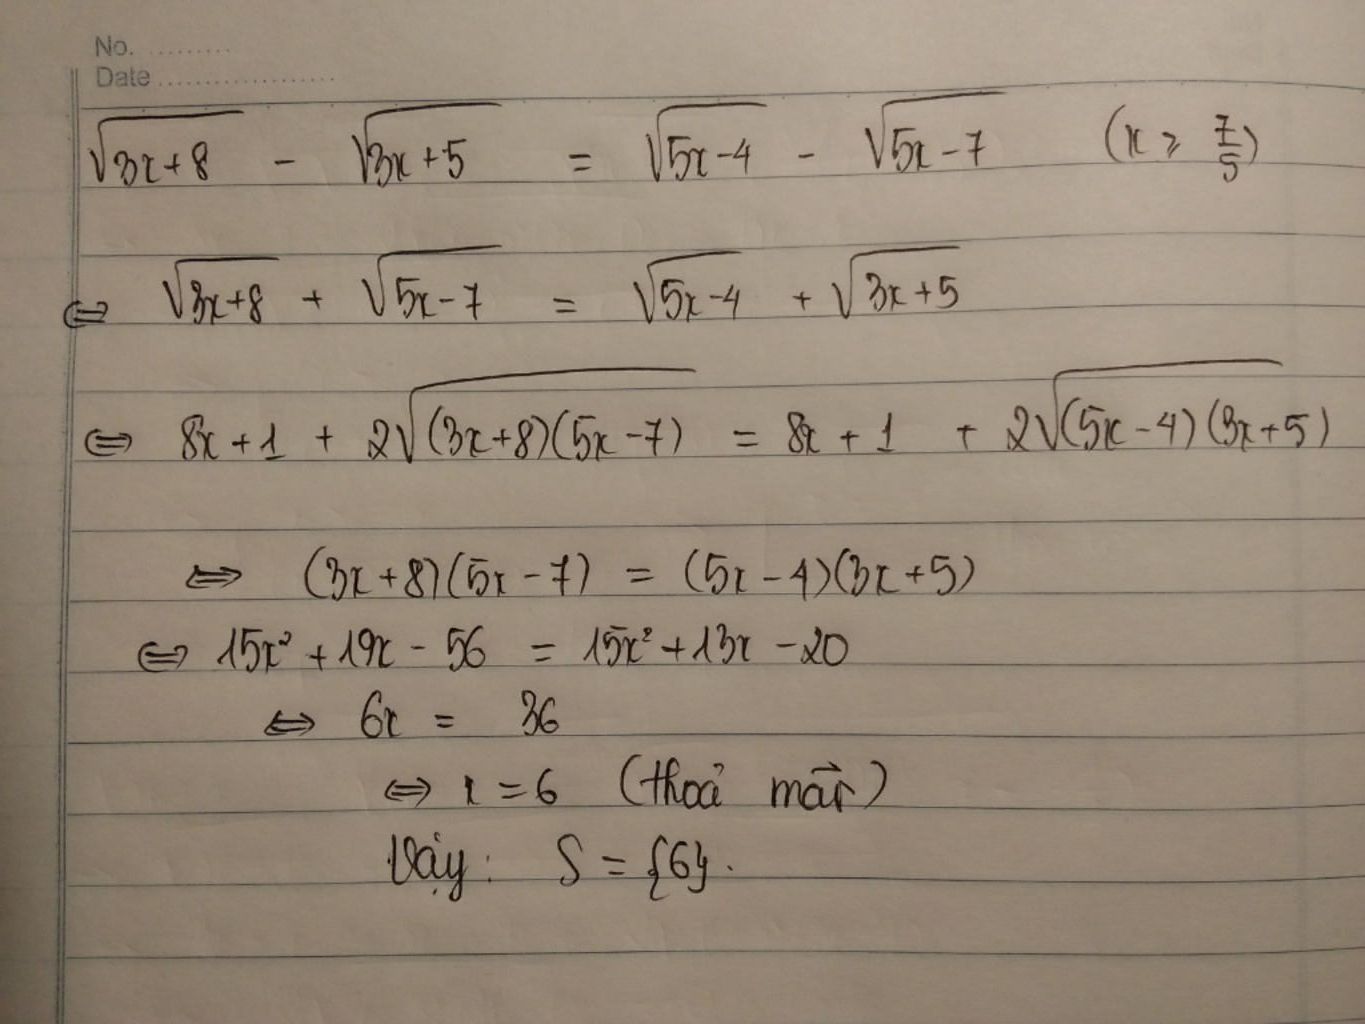 No. .........
Date ...................
√(3x+8) - √(3x+5) = √(5x-4) - √(5x-7) (x ≥ 7/5)
⇔ √(3x+8) + √(5x-7) = √(5x-4) + √(3x+5)
⇔ 8x+1 + 2√((3x+8)(5x-7)) = 8x+1 + 2√((5x-4)(3x+5))
⇔ (3x+8)(5x-7) = (5x-4)(3x+5)
⇔ 15x²+19x-56 = 15x²+13x-20
⇔ 6x = 36
⇔ x=6 (thoả mãn)
Vậy: S = {6}.